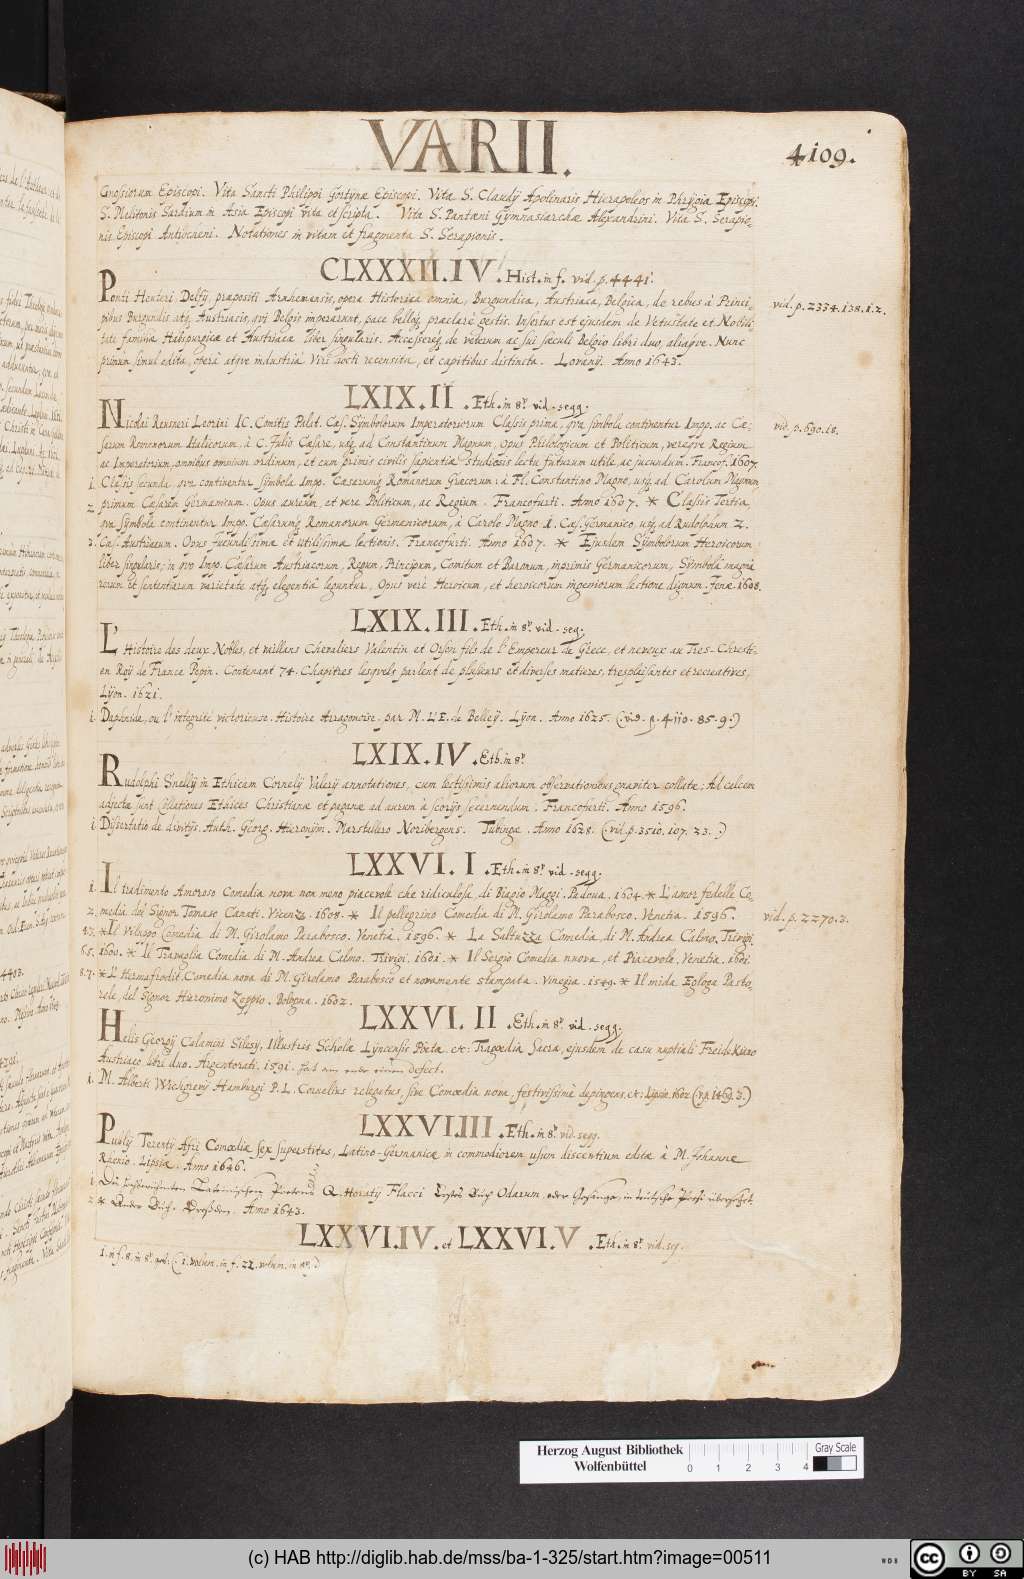 VARII.
4109.
Gnossiorum Episcopi. Vita Sancti Philippi Gortynæ Episcopi. Vita S. Claudij Apolinaris Hierapoleos in Phrijgia Episcopi.
S. Melitonis Sardium in Asia Episcopi vita et scripta. Vita S. Pantæni Gymnasiarchæ Alexandrini. Vita S. Serapio-
nis Episcopi Antiocheni. Notationes in vitam et fragmenta S. Serapionis.
CLXXXII.IV. Hist. in f. vid. p. 4441.
Ponti Heuteri Delfij, præpositi Arnhemensis, opera Historica omnia, Burgundica, Austriaca, Belgica, de rebus à Princi-
vid. p. 2334. 138. 1. 2.
pibus Burgundis atq. Austriacis, qvi Belgis imperarunt, pace belloq. præclarè gestis. Insertus est ejusdem de Vetustate et Nobili-
tate familiæ Habspurgicæ et Austriacæ liber singularis. Accessereq. de veterum ac sui sæculi Belgio libri duo, aliaqve. Nunc
primùm simul edita, operâ atqve industriâ Viri docti recensita, et capitibus distincta. Lovanij. Anno 1643.
LXIX.II. Eth. in 8°. vid. segg.
Nicolai Reusneri Leorini IC. Comitis Palat. Cæs. Symbolorum Imperatoriorum Classis prima, qva symbola continentur Impp. ac Cæ-
vid. p. 690. 18.
sarum Romanorum Italicorum, à C. Julio Cæsare, usq. ad Constantinum Magnum, Opus Philologicum et Politicum, vereqve Regium
ac Imperatorium, omnibus omnium ordinum, et cum primis civilis sapientiæ studiosis lectu futurum utile, ac jucundum. Francof. 1607.
1. Classis secunda, qva continentur Symbola Impp. Cæsarumq. Romanorum Græcorum: à Fl. Constantino Magno, usq. ad Carolum Magnum
primum Cæsarem Germanicum. Opus aureum, et vere Politicum, ac Regium. Francofurti. Anno 1607. * Classis Tertia,
2. qva Symbola continentur Impp. Cæsarumq. Romanorum Germanicorum, à Carolo Magno I. Cæs. Germanico, usq. ad Rudolphum 2.
3. Cæs. Austriacum. Opus jucundissimæ et utilissimæ lectionis. Francofurti. Anno 1607. * Ejusdem Symbolorum Heroicorum
liber singularis; in qvo Impp. Cæsarum Austriacorum, Regum, Principum, Comitum et Baronum, inprimis Germanicorum, Symbola magna
rerum et sententiarum varietate atq. elegentiâ leguntur, Opus verè Heroicum, et heroicorum ingeniorum lectione dignum. Jenæ. 1608.
LXIX.III. Eth. in 8°. vid. seg.
L' Histoire des deux Nobles, et vaillans Chevaliers Valentin et Orson fils de l'Empereur de Grece, et neveux au Tres-Chresti-
en Roij de France Pepin. Contenant 74. Chapitres lesqvels parlent de plusieurs et diverses matieres, tresplaisantes et recreatives,
Lijon. 1621.
1. Daphnide, ou l'integrité victorieuse. Histoire Arragonoise. par M. L'E. de Belleij. Lijon. Anno 1625. (vid. p. 4110. 85. 9.)
LXIX.IV. Eth. in 8°.
Rudolphi Snellij in Ethicam Cornelij Valerij annotationes, cum lectissimis aliorum observationibus graviter collatæ; Ad calcem
adjectæ sunt Collationes Ethices Christianæ et paganæ ad aurum à scorijs secernendum. Francofurti. Anno 1596.
1. Dissertatio de divitijs. Auth. Georg. Hieronym. Marstallero Noribergens. Tubingæ. Anno 1628. (vid. p. 3510. 107. 23.)
LXXVI.I. Eth. in 8°. vid. segg.
1. Il tradimento Amoroso Comedia nova non meno piacevole che ridiculosa, di Biagio Maggi. Padoua. 1604. * L'amor fedelle Co-
2. media del Signor Tomaso Canati. Vicenza. 1608. * Il pellegrino Comedia di M. Girolamo Parabosco. Venetia. 1596.
vid. p. 2270. 3.
4.3. * Il Viluppo Comedia di M. Girolamo Parabosco. Venetia. 1596. * La Saltuzza Comedia di M. Andrea Calmo. Trivigi.
6.5. 1600. * Il Travaglia Comedia di M. Andrea Calmo. Trivigi. 1601. * Il Sergio Comedia nuova, et Piacevole. Venetia. 1601.
8.7. * L'Hermafrodit. Comedia nova di M. Girolamo Parabosco et novamente stampata. Vinegia. 1549. * Il mida Egloga Pasto-
rale, del Signor Hieronimo Zoppio. Bologna. 1602.
LXXVI.II. Eth. in 8°. vid. segg.
Helis Georgij Calamini Silesij, Illustris Scholæ Lyncensis Poetæ etc: Tragoedia Sacra, ejusdem de casu nuptiali
Austriaco libri duo. Argentorati. 1591. defect.
1. M. Alberti Wichgrevij Hamburgi P. L. Cornelius relegatus, sive Comoedia nova, festivissimè depingens, etc: Lipsiæ. 1602. (vp. 1469. 3.)
LXXVI.III. Eth. in 8°. vid. segg.
Publij Terentij Afri Comoediæ sex superstites, Latino-Germanicæ in commodiorem usum discentium editæ à M. Johanne
Rhenio. Lipsiæ. Anno 1646.
1. Des Lateinischen Poeten Q. Horatij Flacci Erstes Buch Odarum, oder Gesänge, in teutsche Poesi übersetzet.
2. * Ander Buch. Dresden. Anno 1643.
LXXVI.IV. et LXXVI.V. Eth. in 8°. vid. seg.
Herzog August Bibliothek
Wolfenbüttel
0 1 2 3 4
Gray Scale
(c) HAB http://diglib.hab.de/mss/ba-1-325/start.htm?image=00511
WDB
cc BY SA